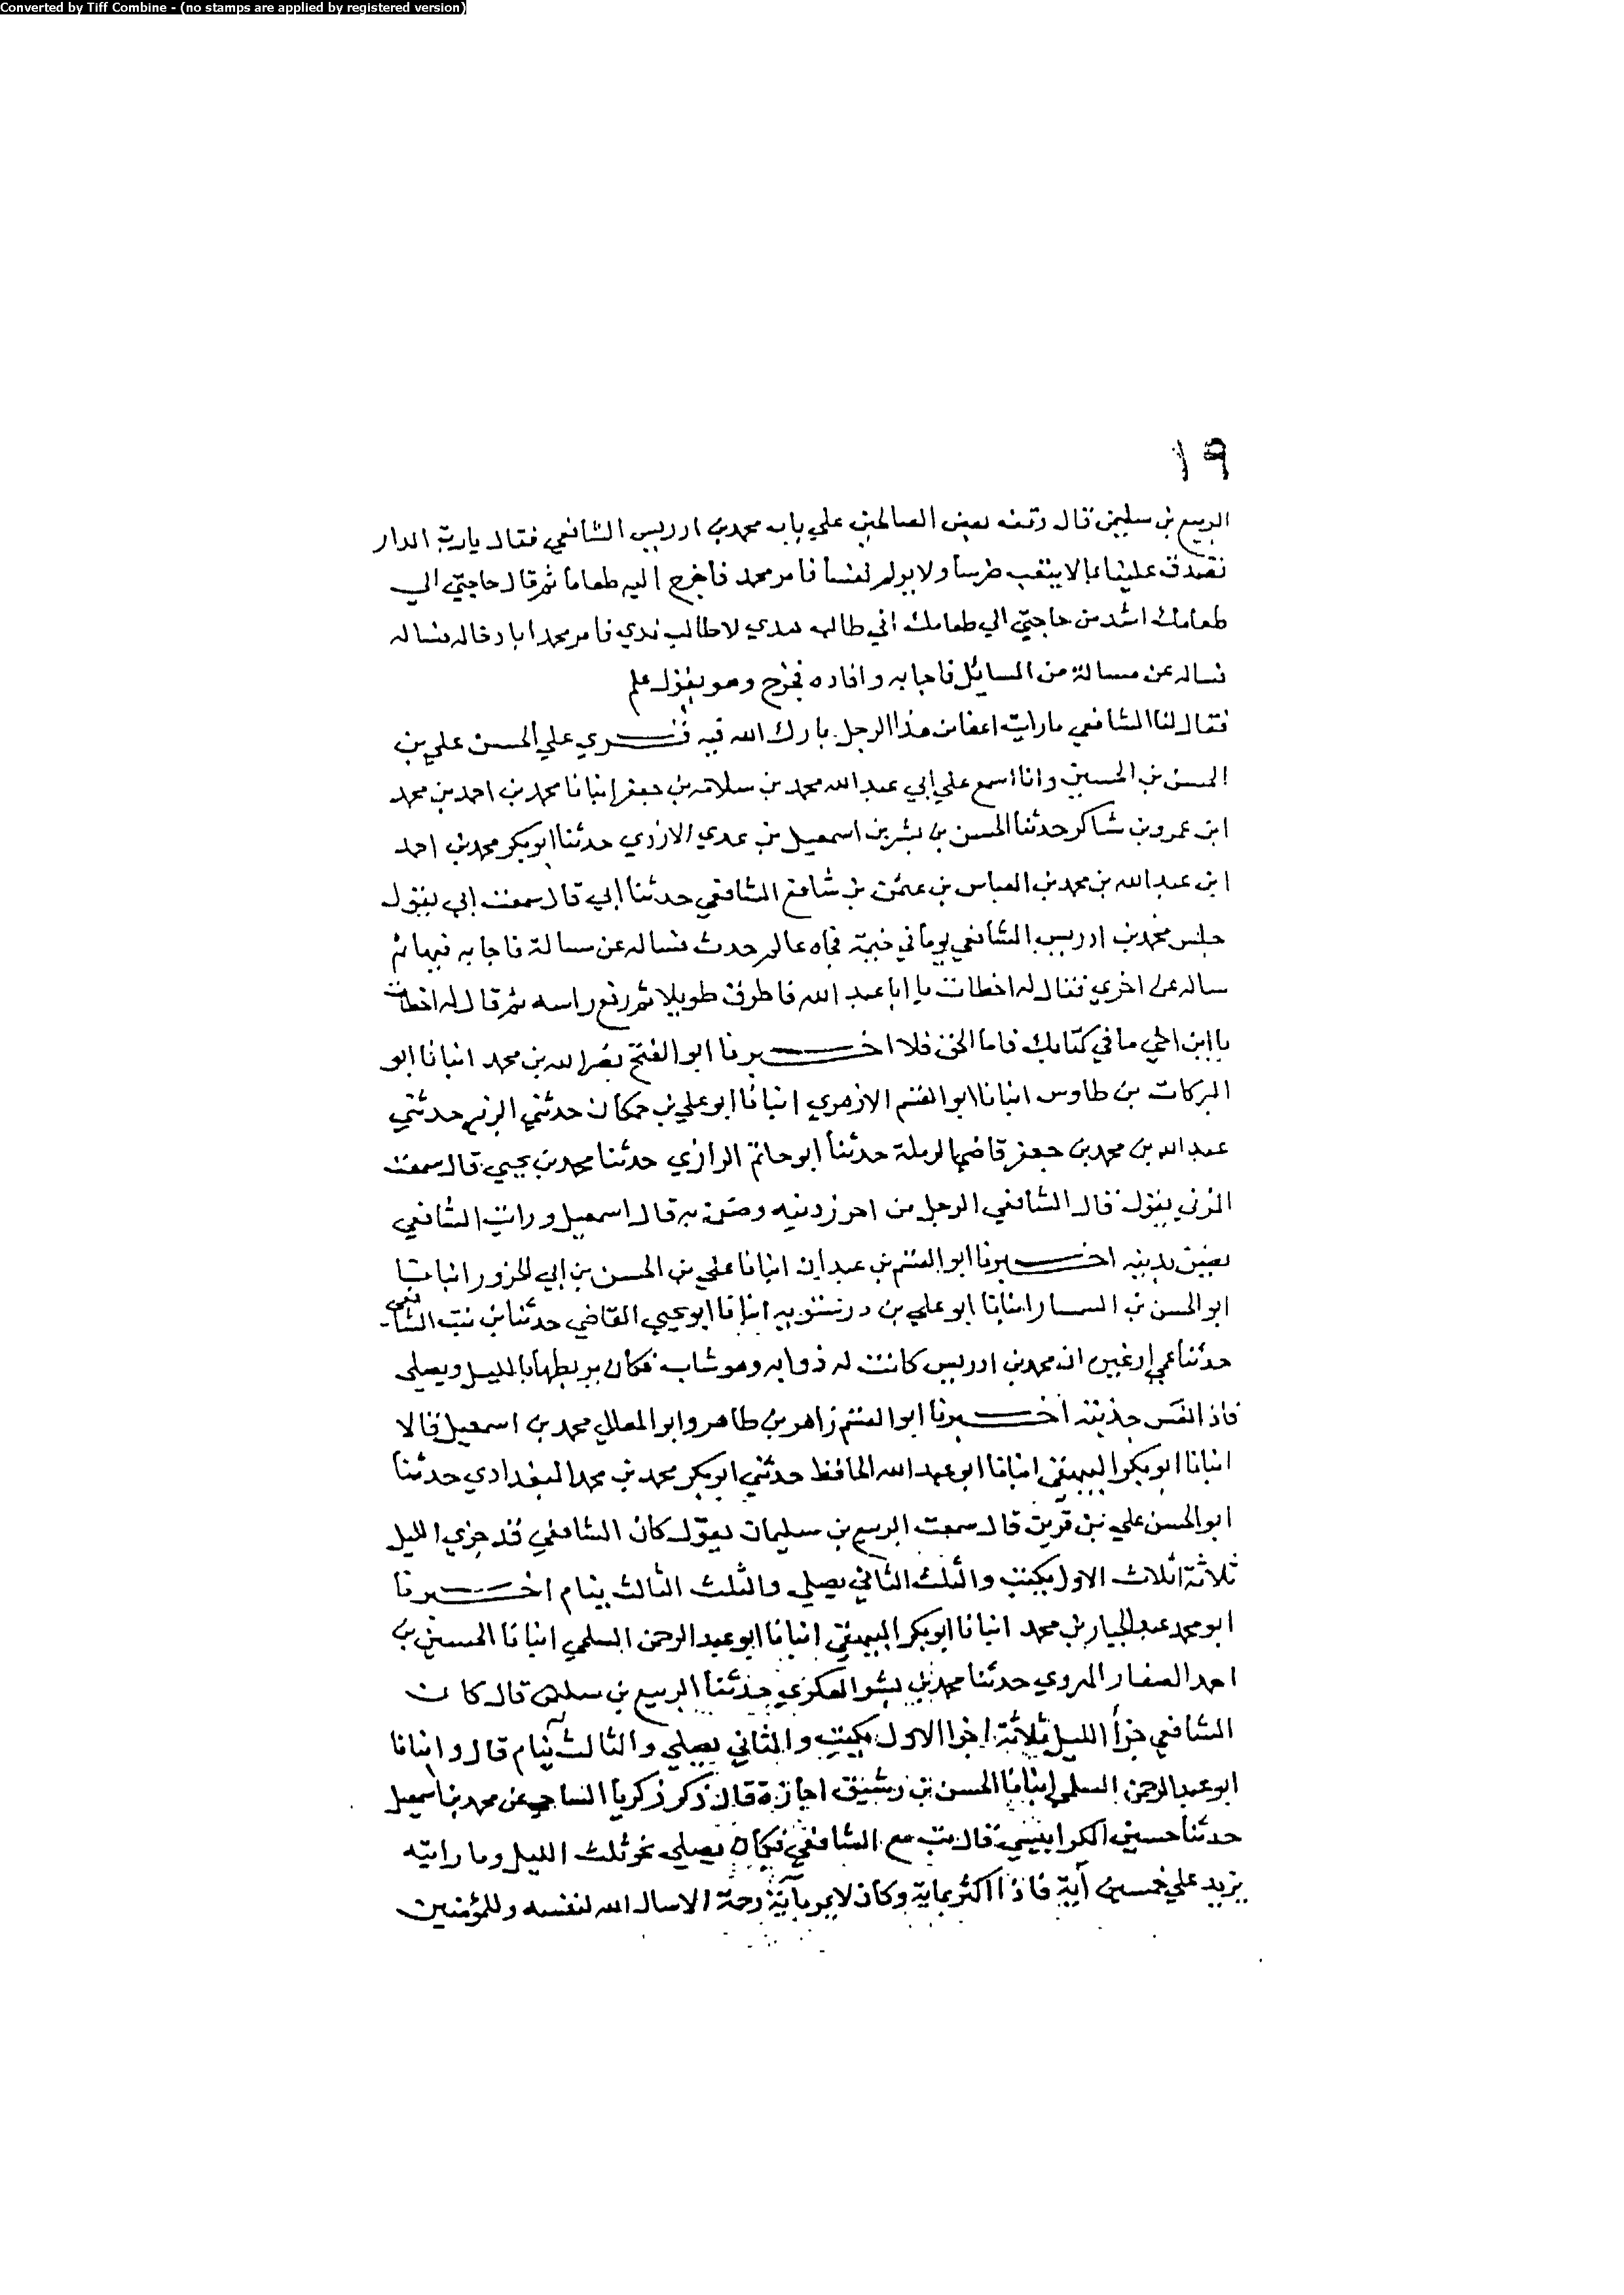 Converted by Tiff Combine - (no stamps are applied by registered version)
١٩
الربيع بن سليمن قال وقف بعض الصالحين علي باب محمد بن ادريس الشافعي فقال يا رب الدار
تصدق علينا بما لا يتعب ضرسا ولا يولم نفسا فامر محمد فاخرج اليه طعاما ثم قال حاجتي الي
طعامك اشد من حاجتي الي طعامك اني طالب هدي لا طالب ندي فامر محمد ابادخاله فساله
فساله عن مسالة من المسايل فاجابه وافاده فخرج وهو يقول علم
فقال لنا الشافعي ما رايت اعقل من هذا الرجل بارك الله فيه قري علي الحسن علي بن
الحسن بن الحسين وانا اسمع علي ابي عبد الله محمد بن سلامه بن جعفر انبانا محمد بن احمد بن محمد
ابن عمرو بن شاكر حدثنا الحسن بن بشر بن اسمعيل بن عدي الازدي حدثنا ابو بكر محمد بن احمد
ابن عبد الله بن محمد بن العباس بن عثمن بن شافع الشافعي حدثنا ابي قال سمعت ابي يقول
جلس محمد بن ادريس الشافعي يوما في خيمة فجاه عالم حدث فساله عن مسالة فاجابه فيها ثم
ساله عن اخري فقال له اخطات يا ابا عبد الله فاطرق طويلا ثم رفع راسه ثم قال له اخطات
يا ابن اخي ما في كتابك فاما الحق فلا اخبرنا ابو الفتح نصر الله بن محمد انبانا ابو
البركات بن طاوس انبانا ابو القسم الازهري انبانا ابو علي بن حمكان حدثني الزبير حدثني
عبد الله بن محمد بن جعفر قاضي الرملة حدثنا ابو حاتم الرازي حدثنا محمد بن يحيي قال سمعت
المزني يقول قال الشافعي الرجل من احرز دينه وضن به قال اسمعيل ورايت الشافعي
يضن بدينه اخبرنا ابو القسم بن عبدان انبانا علي بن الحسن بن ابي الحزور انبانا
ابو الحسن بن السمسار انبانا ابو علي بن درستويه انبانا ابو يحيي القاضي حدثنا بن بنت الشافعي
حدثنا عمي او غيره ان محمد بن ادريس كانت له ذوابه وهو شاب فكان يربطها بالليل ويصلي
فاذا نعس جذبته اخبرنا ابو القسم زاهر بن طاهر وابو المعالي محمد بن اسمعيل قالا
انبانا ابو بكر البيهقي انبانا ابو عبد الله الحافظ حدثني ابو بكر محمد بن محمد البغدادي حدثنا
ابو الحسن علي بن قرين قال سمعت الربيع بن سليمان يقول كان الشافعي قد جزي الليل
ثلاثة اثلاث الاول يكتب والثلث الثاني يصلي والثلث الثالث ينام اخبرنا
ابو محمد عبد الجبار بن محمد انبانا ابو بكر البيهقي انبانا ابو عبد الرحمن السلمي انبانا الحسين بن
احمد الصفار الهروي حدثنا محمد بن بشر العكري حدثنا الربيع بن سليمن قال كان
الشافعي جزأ الليل ثلاثة اجزا الاول يكتب والثاني يصلي والثالث ينام قال وانبانا
ابو عبد الرحمن السلمي انبانا الحسن بن رشيق اجازة قال ذكر زكريا الساجي عن محمد بن اسمعيل
حدثنا حسين الكرابيسي قال بت مع الشافعي فكان يصلي نحو ثلث الليل وما رايته
يزيد علي خمسين آية فاذا اكثر بماية وكان لا يمر بآية رحمة الا سال الله لنفسه وللمؤمنين